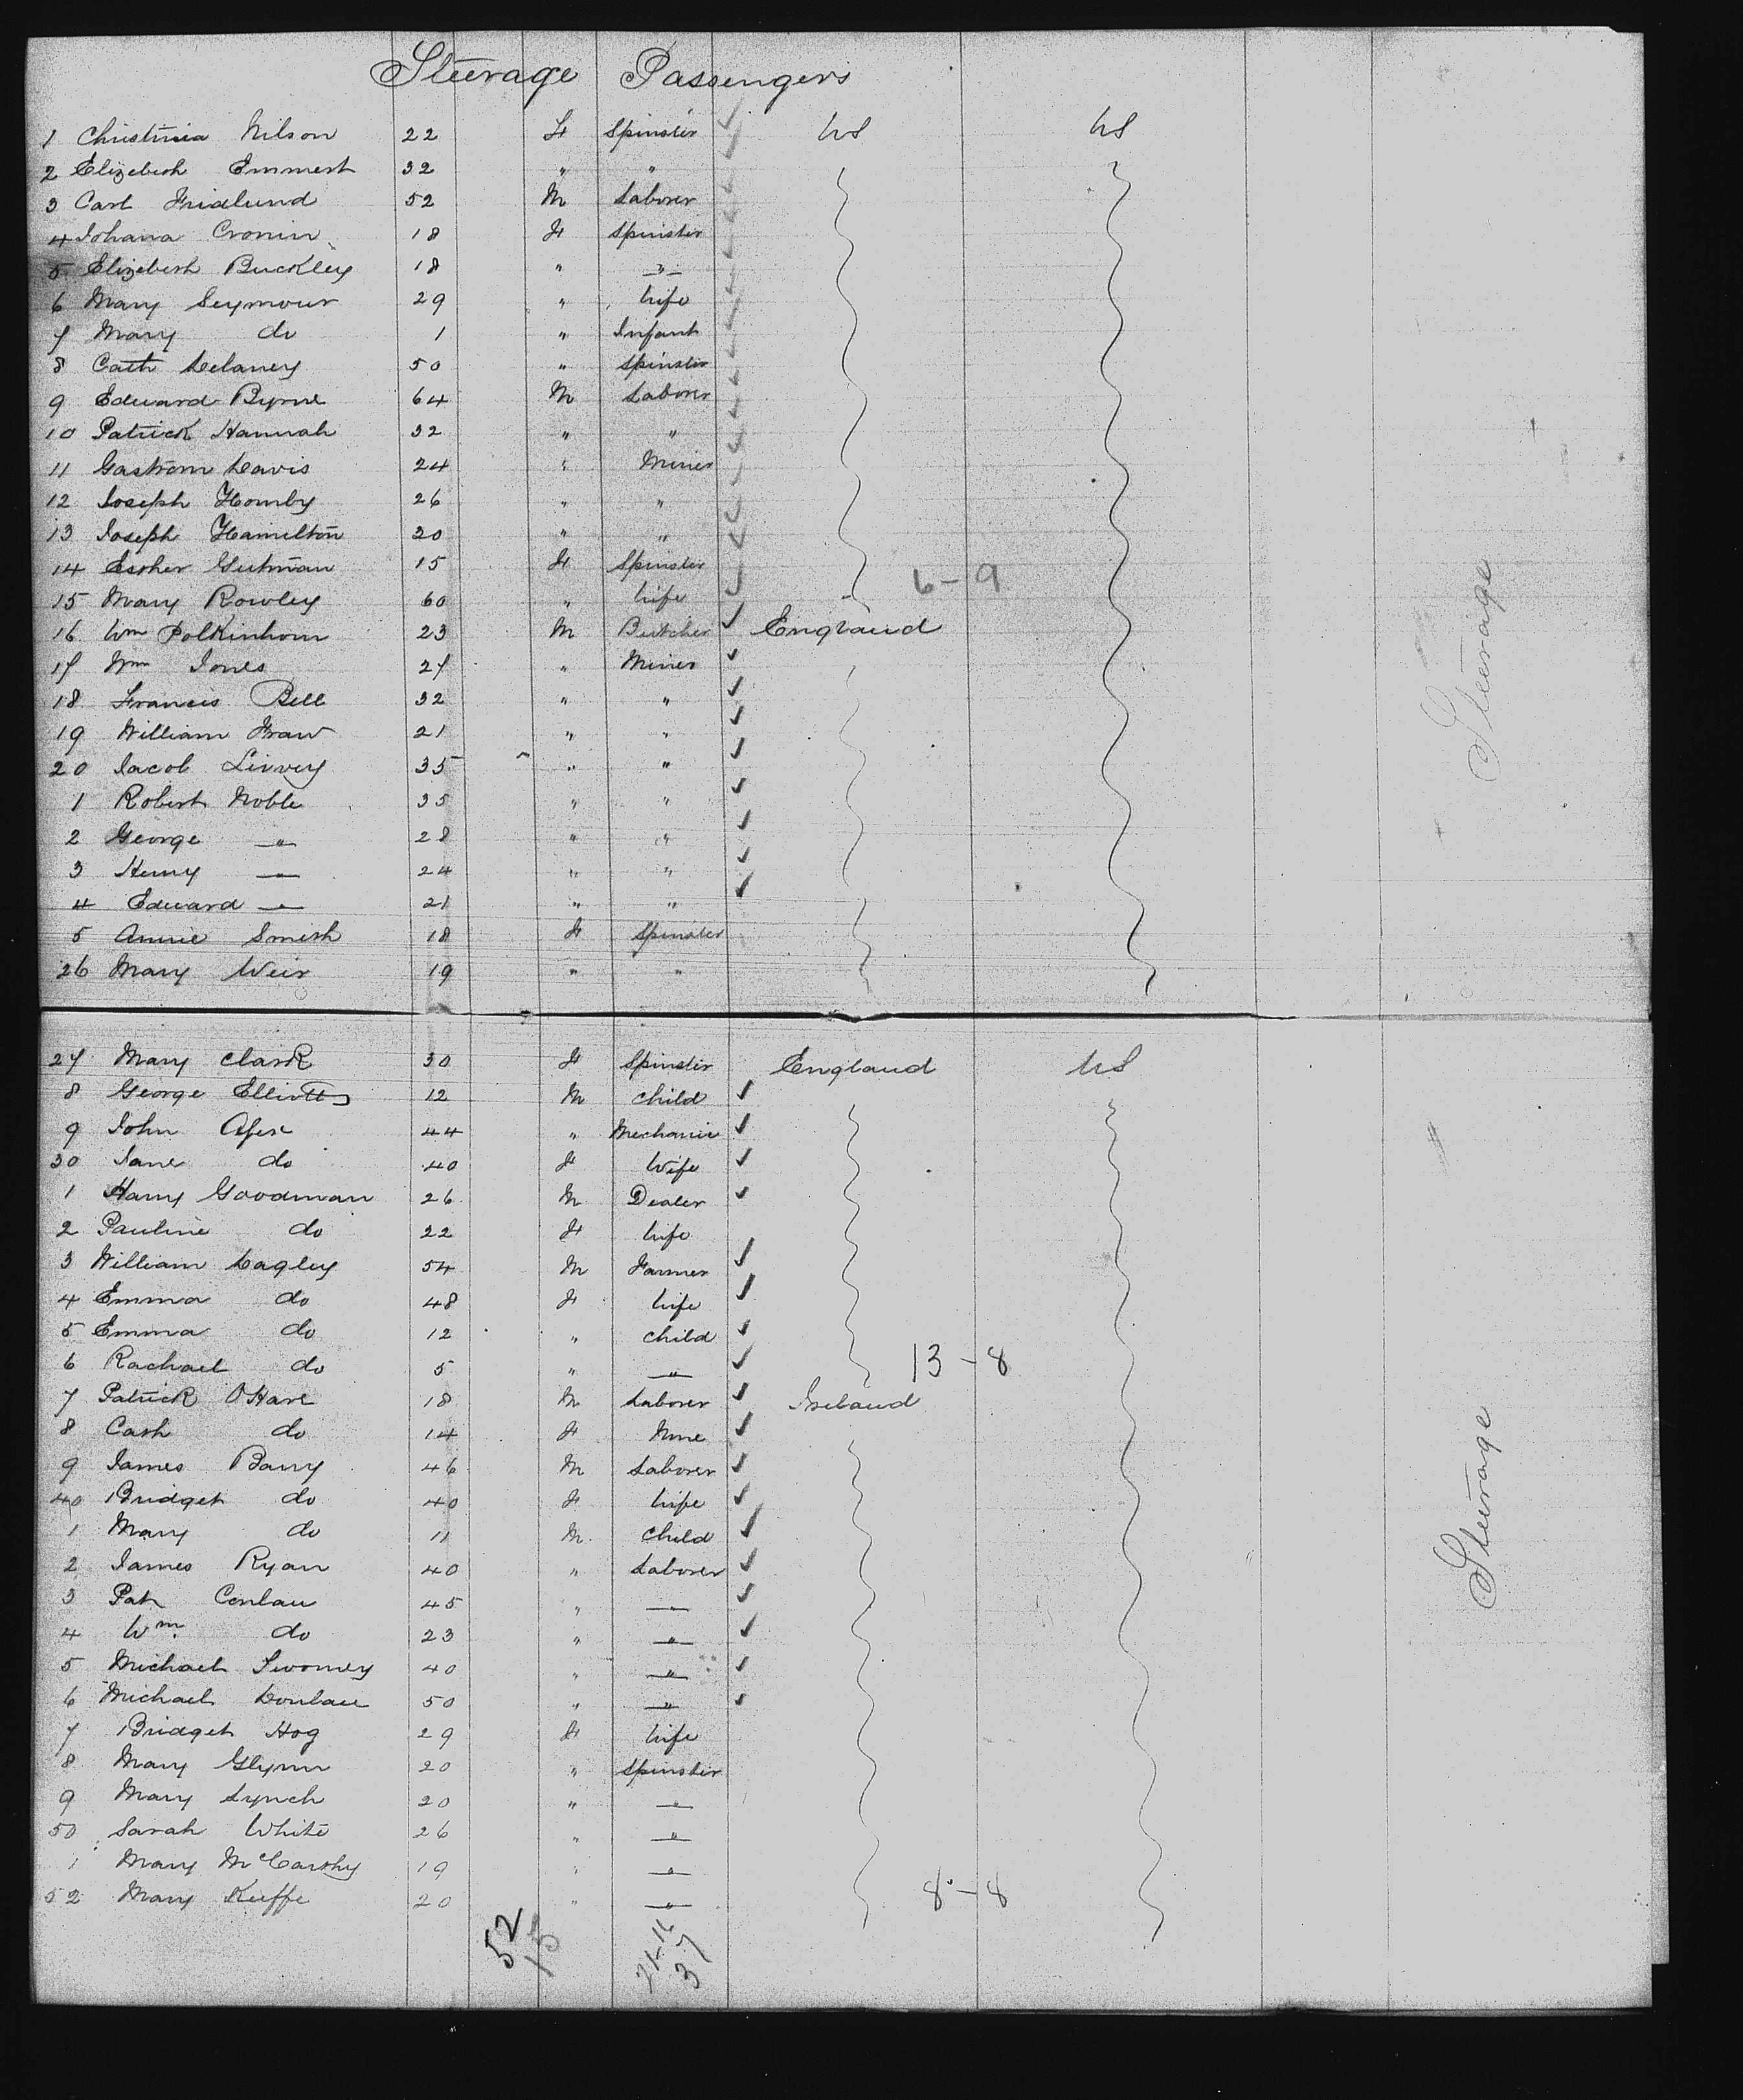 Steerage Passengers
1 Christinia Nilson 22 F Spinster US US
2 Elizebeth Emmert 32 " "
3 Carl Fridlund 52 M Laborer
4 Johana Cronin 18 F Spinster
5 Elizebeth Buckley 18 " "
6 Mary Seymour 29 " Wife
7 Mary do 1 " Infant
8 Cath Delaney 50 " Spinster
9 Edward Byrne 64 M Laborer
10 Patrick Hannah 32 " "
11 Gastrom Davis 24 " Miner
12 Joseph Homby 26 " "
13 Joseph Hamilton 20 " "
14 Esther Gutman 15 F Spinster
6-9
15 Mary Rowley 60 " Wife
16 Wm Polkinhorn 23 M Butcher England
17 Wm Jones 27 " Miner
18 Francis Bell 32 " "
19 William Fraw 21 " "
20 Jacob Livvey 35 " "
1 Robert Noble 35 " "
2 George " 28 " "
3 Henry " 24 " "
4 Edward " 21 " "
5 Annie Smith 18 F Spinster
26 Mary Weir 19 " "
Steerage
27 Mary Clark 30 F Spinster England US
8 George Elliott 12 M Child
9 John 44 " Mechanic
30 Jane do 40 F Wife
1 Harry Goodman 26 M Dealer
2 Pauline do 22 F Wife
3 William Dagley 54 M Farmer
4 Emma do 48 F Wife
5 Emma do 12 " Child
6 Rachael do 5 " " 13-8
7 Patrick OHare 18 M Laborer Ireland
8 Cath do 14 F None
9 James Barry 46 M Laborer
40 Bridget do 40 F Wife
1 Mary do 11 M Child
2 James Ryan 40 " Laborer
3 Pat Conlan 45 " "
4 Wm do 23 " "
5 Michael Twomey 40 " "
6 Michael Donlan 50 " "
7 Bridget Hog 29 F Wife
8 Mary Glynn 20 " Spinster
9 Mary Lynch 20 " "
50 Sarah White 26 " "
1 Mary McCarthy 19 " "
52 Mary Keeffe 20 " " 8-8
Steerage
52
15
21-16
37